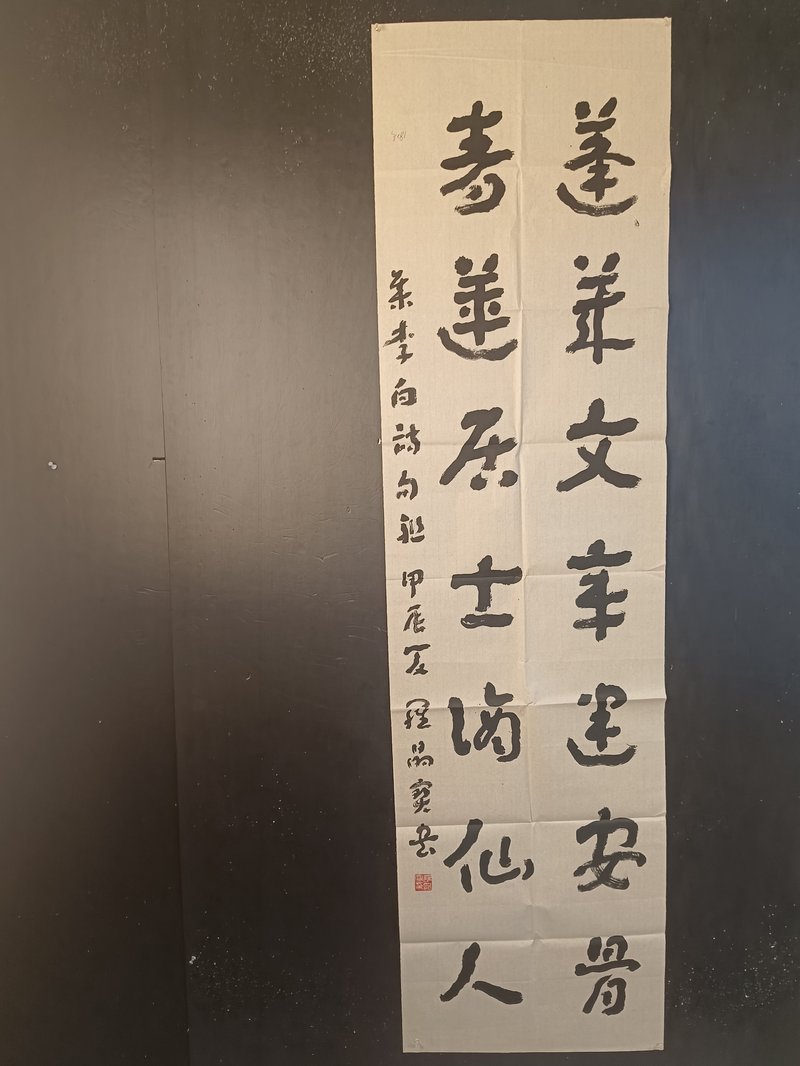 蓬萊文章建安骨
青蓮居士謫仙人
集李白詩句聯 甲辰夏 羅寶書